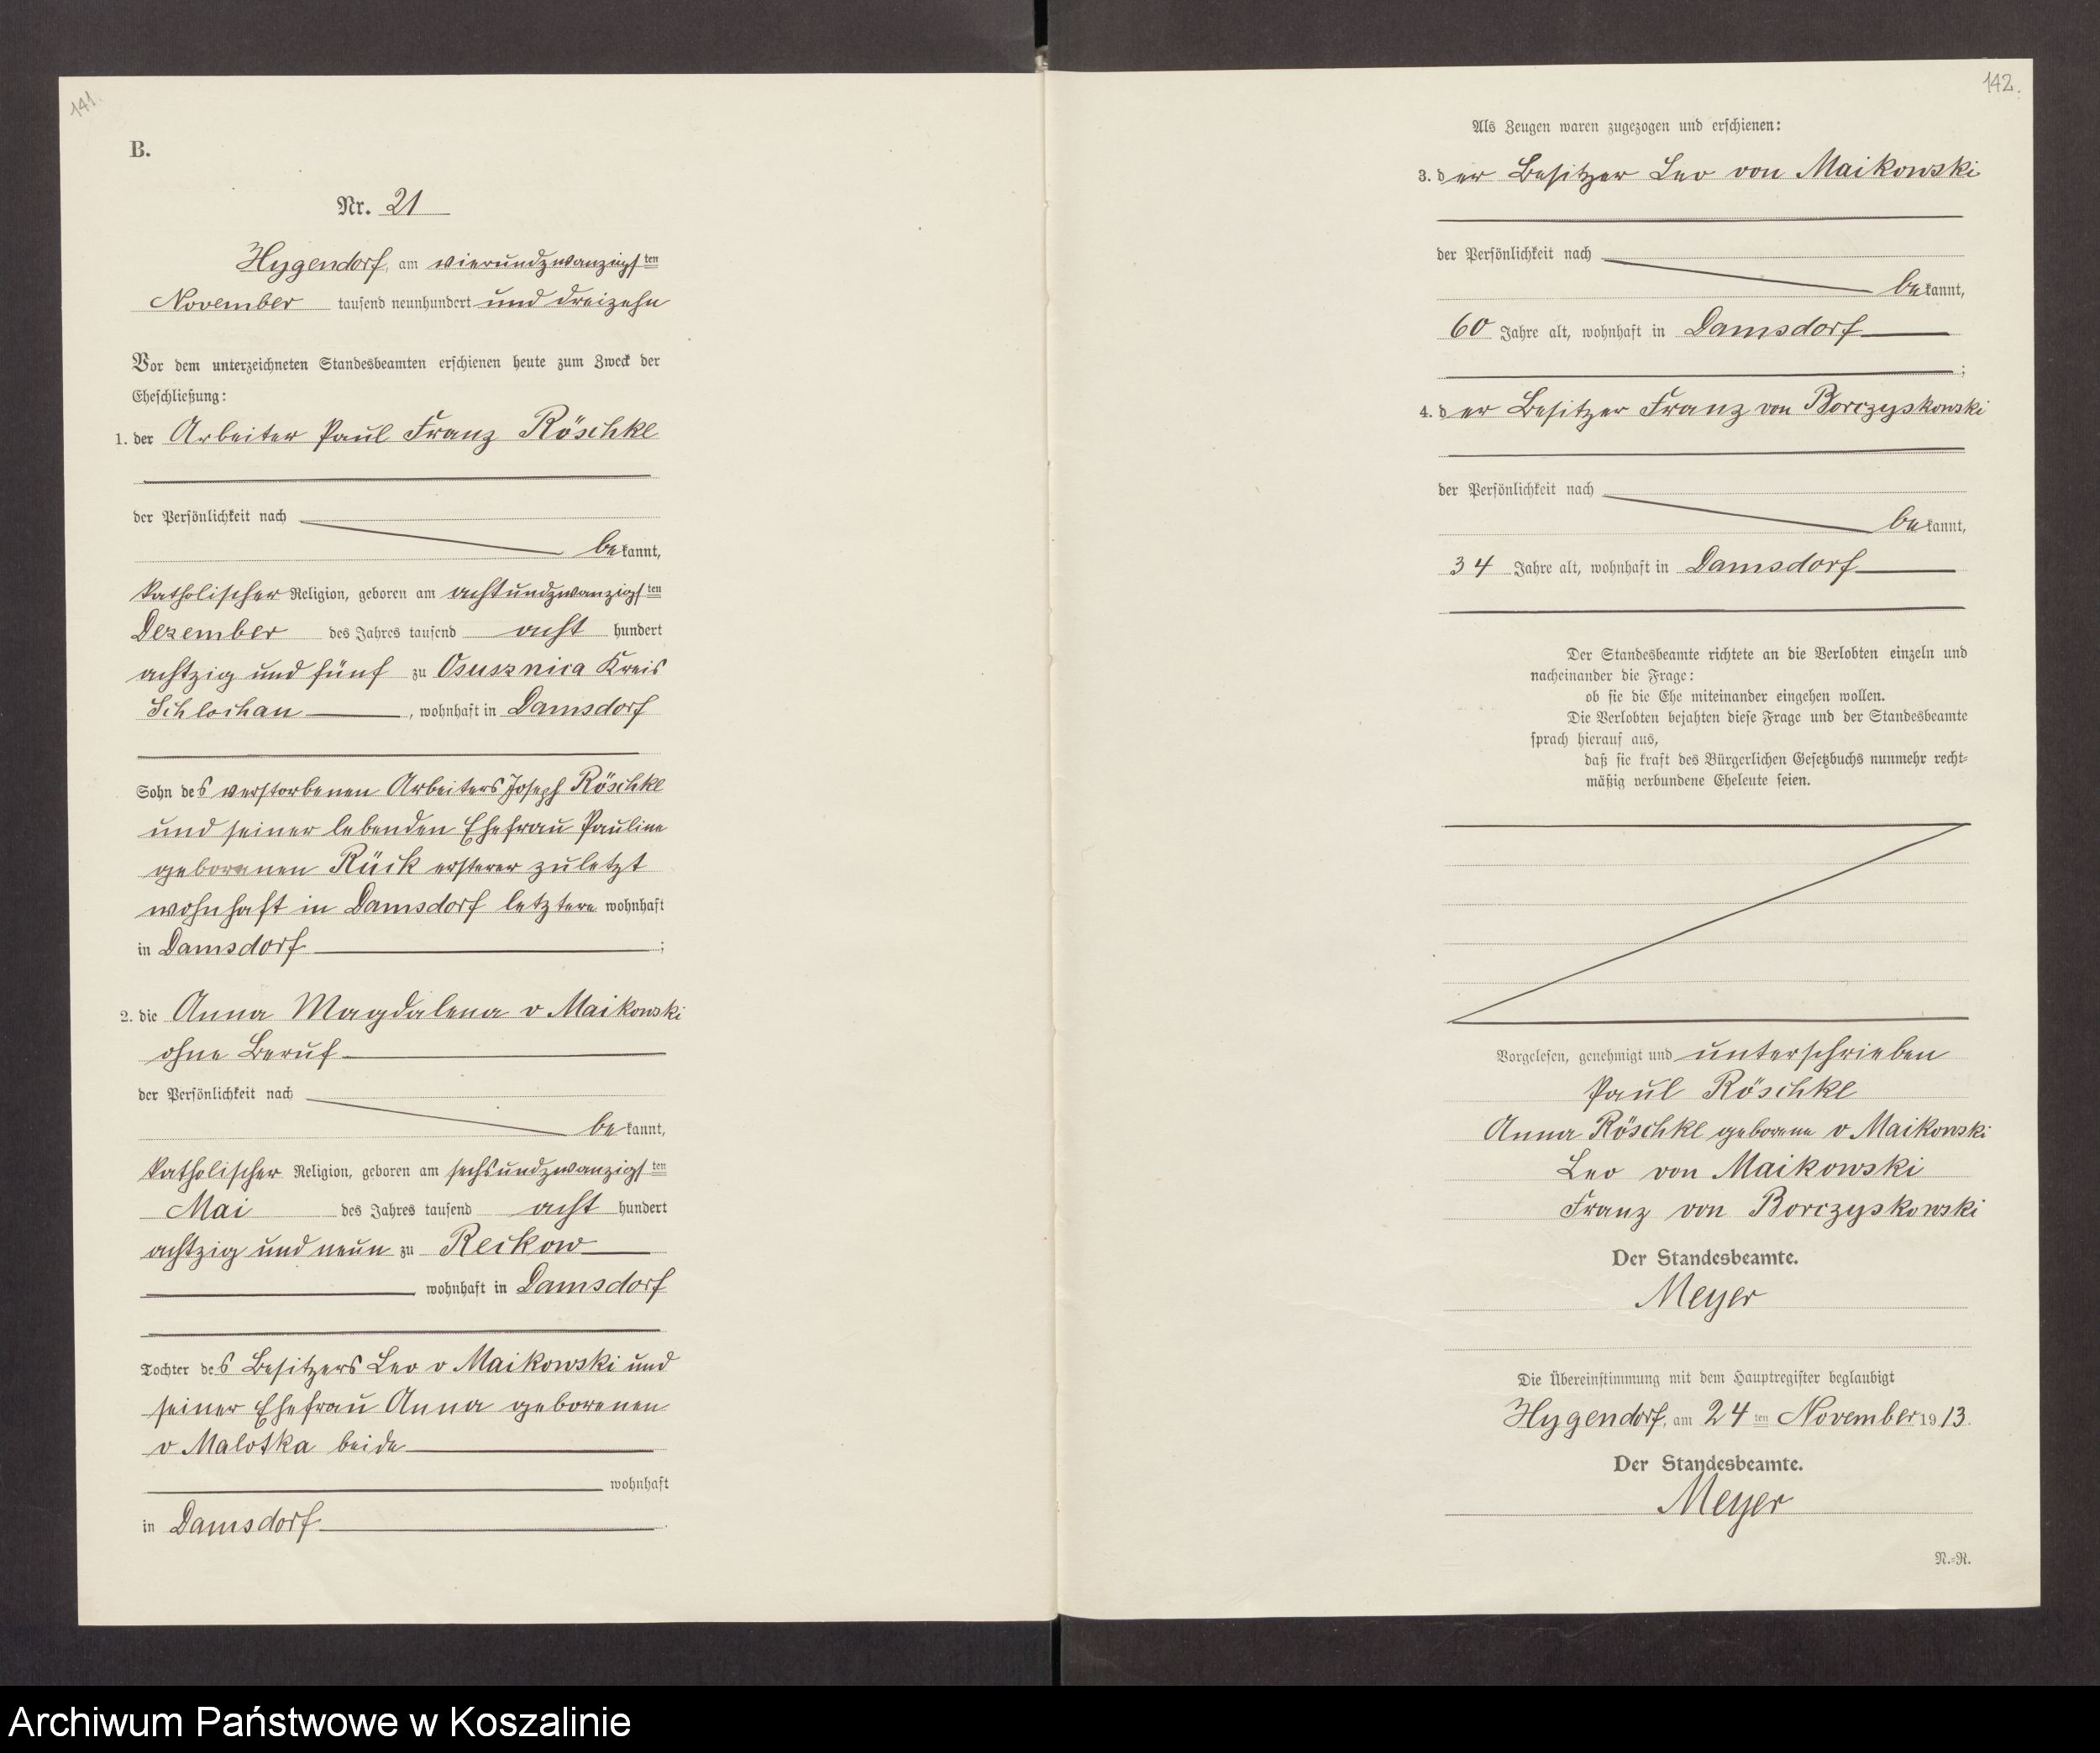 141.
B.
Nr. 21
Hygendorf, am vierundzwanzigsten
November tausend neunhundert und dreizehn
Vor dem unterzeichneten Standesbeamten erschienen heute zum Zweck der
Eheschließung:
1. der Arbeiter Paul Franz Röschke
der Persönlichkeit nach
bekannt,
katholischer Religion, geboren am achtundzwanzigsten
Dezember des Jahres tausend acht hundert
achtzig und fünf zu Osusznica Kreis
Schlochau, wohnhaft in Damsdorf
Sohn des verstorbenen Arbeiters Joseph Röschke
und seiner lebenden Ehefrau Pauline
geborenen Rück ersterer zuletzt
wohnhaft in Damsdorf letztere wohnhaft
in Damsdorf;
2. die Anna Magdalena v Maikowski
ohne Beruf
der Persönlichkeit nach
bekannt,
katholischer Religion, geboren am sechsundzwanzigsten
Mai des Jahres tausend acht hundert
achtzig und neun zu Reckow
wohnhaft in Damsdorf
Tochter des Besitzers Leo v Maikowski und
seiner Ehefrau Anna geborenen
v Malotka beide
wohnhaft
in Damsdorf.
142.
Als Zeugen waren zugezogen und erschienen:
3. der Besitzer Leo von Maikowski
der Persönlichkeit nach
bekannt,
60 Jahre alt, wohnhaft in Damsdorf
;
4. der Besitzer Franz von Borczyskowski
der Persönlichkeit nach
bekannt,
34 Jahre alt, wohnhaft in Damsdorf
Der Standesbeamte richtete an die Verlobten einzeln und
nacheinander die Frage:
ob sie die Ehe miteinander eingehen wollen.
Die Verlobten bejahten diese Frage und der Standesbeamte
sprach hierauf aus,
daß sie kraft des Bürgerlichen Gesetzbuchs nunmehr recht-
mäßig verbundene Eheleute seien.
Vorgelesen, genehmigt und unterschrieben
Paul Röschke
Anna Röschke geborene v Maikowski
Leo von Maikowski
Franz von Borczyskowski
Der Standesbeamte.
Meyer
Die Übereinstimmung mit dem Hauptregister beglaubigt
Hygendorf, am 24ten November 1913.
Der Standesbeamte.
Meyer
N.-R.
Archiwum Państwowe w Koszalinie